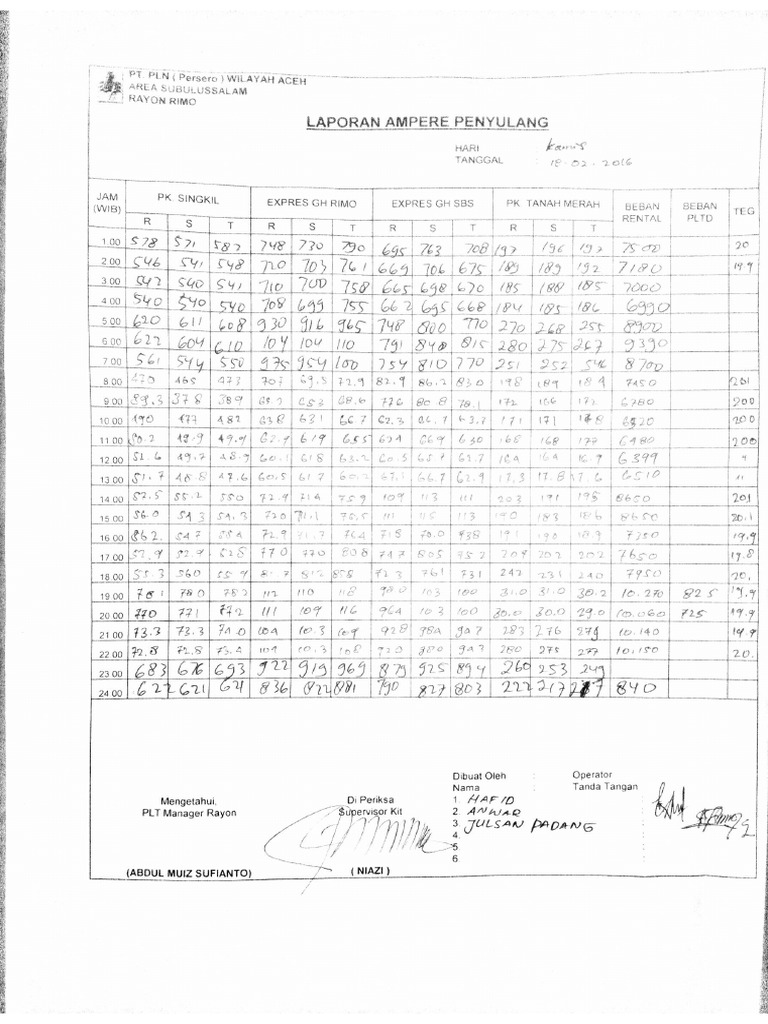 PT. PLN ( Persero ) WILAYAH ACEH
AREA SUBULUSSALAM
RAYON RIMO
LAPORAN AMPERE PENYULANG
HARI : Kamis
TANGGAL : 18-02-2016
JAM (WIB) PK. SINGKIL EXPRES GH RIMO EXPRES GH SBS PK. TANAH MERAH BEBAN RENTAL BEBAN PLTD TEG
R S T R S T R S T R S T
1.00 578 571 587 748 730 790 695 763 708 197 196 197 7500 20
2.00 546 541 548 720 703 761 669 706 675 189 189 192 7180 19.9
3.00 542 540 541 710 700 758 665 698 670 185 188 185 7000
4.00 540 540 540 708 699 755 662 695 668 184 185 186 6990
5.00 620 611 608 930 916 965 748 800 770 270 268 255 8900
6.00 622 604 610 104 104 110 791 848 815 280 275 267 9390
7.00 561 544 550 975 954 100 754 810 770 251 252 546 8700
8.00 470 465 473 707 69.5 72.9 82.9 86.2 830 198 189 189 7450 201
9.00 89.3 378 389 653 68.6 776 80.8 78.1 172 166 172 6780 200
10.00 490 477 482 638 631 66.7 62.3 171 171 200
11.00 49.9 49.9 62.9 619 655 669 630 168 168 177 6480 200
12.00 51.6 49.7 48.9 60.1 618 63.2 60.5 65.7 62.7 164 164 16.9 6399 "
13.00 51.7 48.8 47.6 60.5 617 66.7 62.9 17.3 17.8 17.6 6510 "
14.00 52.5 55.2 550 72.9 714 759 109 113 111 203 191 195 8650 201
15.00 56.0 54.3 54.3 720 71.1 111 115 113 190 183 186 8650 20.1
16.00 547 554 72.9 764 718 191 190 189 7350 19.9
17.00 52.9 52.9 528 770 770 808 747 805 757 204 202 202 7650 19.8
18.00 55.3 560 55.9 858 72.3 761 731 242 231 240 7950 20,
19.00 781 780 782 112 110 118 980 103 100 31.0 31.0 30.2 10.270 825 19.9
20.00 770 771 772 111 109 116 964 103 100 30.0 30.0 29.0 10.060 725 19.9
21.00 73.3 73.3 74.0 104 10.3 109 928 984 947 283 276 279 10.140 19.9
22.00 72.8 72.8 73.4 104 10.3 108 920 980 947 280 275 277 10,150 20.
23.00 683 676 693 922 919 969 879 925 894 260 253 249
24.00 622 621 621 836 822 881 790 827 803 222 217 217 840
Dibuat Oleh : Operator
Nama : Tanda Tangan :
Mengetahui, Di Periksa 1. HAFID
PLT Manager Rayon Supervisor Kit 2. ANWAR
3. JULSAN PADANG
4.
5.
6.
(ABDUL MUIZ SUFIANTO) ( NIAZI )